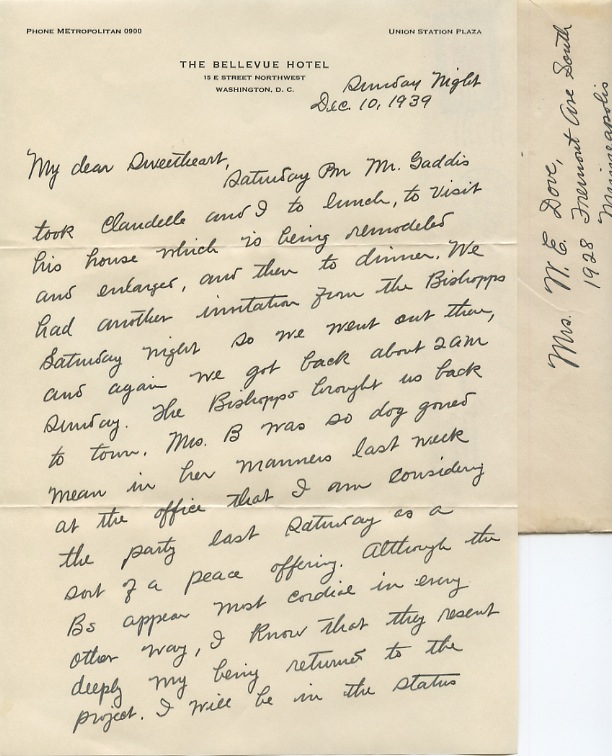 PHONE METROPOLITAN 0900
UNION STATION PLAZA
THE BELLEVUE HOTEL
15 E STREET NORTHWEST
WASHINGTON, D. C.
Sunday Night
Dec. 10, 1939
My dear Sweetheart,
Saturday Pm Mr. Gaddis
took Claudelle and I to lunch, to visit
his house which is being remodeled
and enlarged, and then to dinner. We
had another invitation from the Bishopps
Saturday night so we went out there,
and again we got back about 2 am
Sunday. The Bishopps brought us back
to town. Mrs. B was so dog goned
mean in her manners last week
at the office that I am considering
the party last Saturday as a
sort of a peace offering. Although the
Bs appear most cordial in every
other way, I know that they resent
deeply my being returned to the
project. I will be in the status
Mrs. W. E. Dove,
1928 Fremont Ave South
Minneapolis